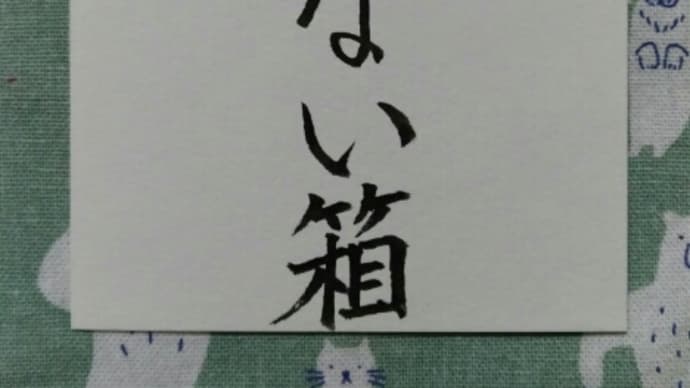 ない箱